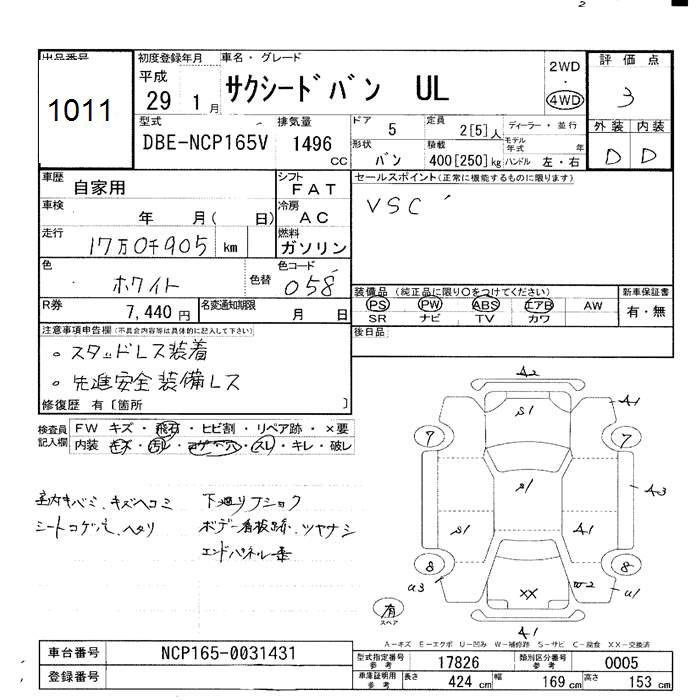 出品番号
1011
初度登録年月
平成
29 1月
車名・グレード
サクシードバン UL
2WD
・
4WD
評価点
3
型式
DBE-NCP165V
排気量
1496
cc
ドア
5
定員
2[5]人
ディーラー・並行
形状
バン
積載
400[250]kg
モデル年式
年
ハンドル 左・右
外装 内装
D D
車歴
自家用
シフト
FAT
セールスポイント(正常に機能するものに限ります)
VSC
車検
年 月( 日)
冷房
AC
走行
17万0千905 km
燃料
ガソリン
色
ホワイト
色替
色コード
058
装備品(純正品に限り○をつけてください)
PS PW ABS エアB AW
SR ナビ TV カワ
新車保証書
有・無
R券
7,440円
名変通知期限
月 日
後日品
注意事項申告欄(不具合内容等は具体的に記入して下さい)
。スタッドレス装着
。先進安全装備レス
修復歴 有〔箇所 〕
検査員記入欄
FW キズ・飛石・ヒビ割・リペア跡・×要
内装 キズ・汚レ・コゲ穴・スレ・キレ・破レ
室内キバミ、キズヘコミ
シートコゲ穴、ヘタリ
下廻リフショク
ボデー看板跡、ツヤナシ
エンドパネル歪
A2
S1
A1
7 7
S1
A3
S1
A1
8 8
a3
XX
W2
u1
A1
有
スペア
A-キズ E-エクボ U-凹み W-補修跡 S-サビ C-腐食 XX-交換済
車台番号
NCP165-0031431
登録番号
型式指定番号
参考
17826
類別区分番号
参考
0005
車庫証明用
参考
長さ
424 cm
幅
169 cm
高さ
153 cm